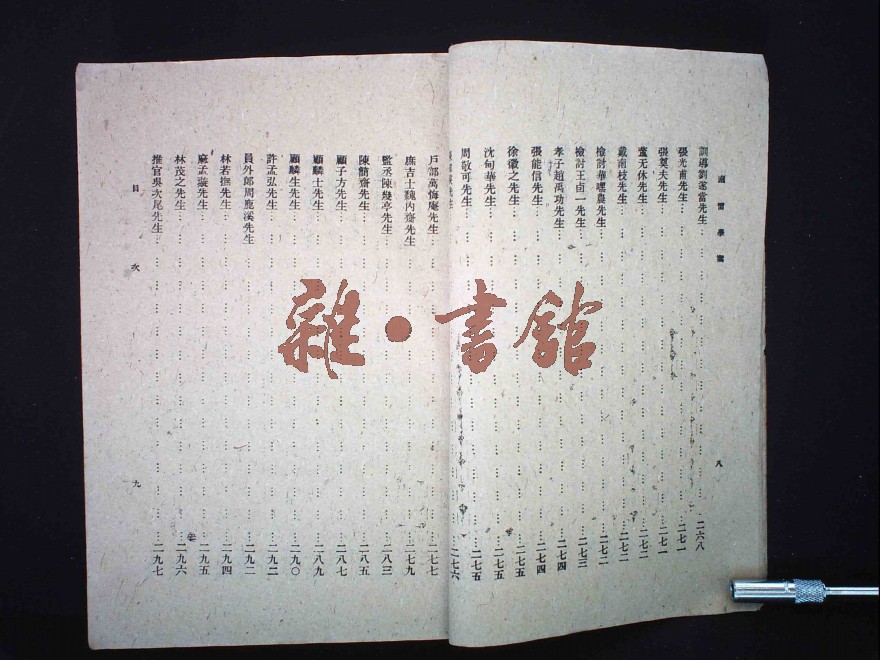 南雷學案
訓導劉瑞當先生 二六八
張光甫先生 二七一
張奠夫先生 二七一
董无休先生 二七二
戴南枝先生 二七二
檢討華嘿農先生 二七二
檢討王卣一先生 二七三
孝子趙禹功先生 二七四
張能信先生 二七四
徐徽之先生 二七五
沈甸華先生 二七五
周敬可先生 二七五
先生 二七六
八
戶部萬悔庵先生 二七七
庶吉士魏內齋先生 二七九
監丞陳幾亭先生 二八三
陳簡齋先生 二八五
顧子方先生 二八七
顧麟士先生 二八九
顧麟生先生 二九〇
許孟弘先生 二九二
員外郎周鹿溪先生 二九二
林若撫先生 二九四
麻孟璇先生 二九五
林茂之先生 二九六
推官吳次尾先生 二九七
目次
九
雜·書館